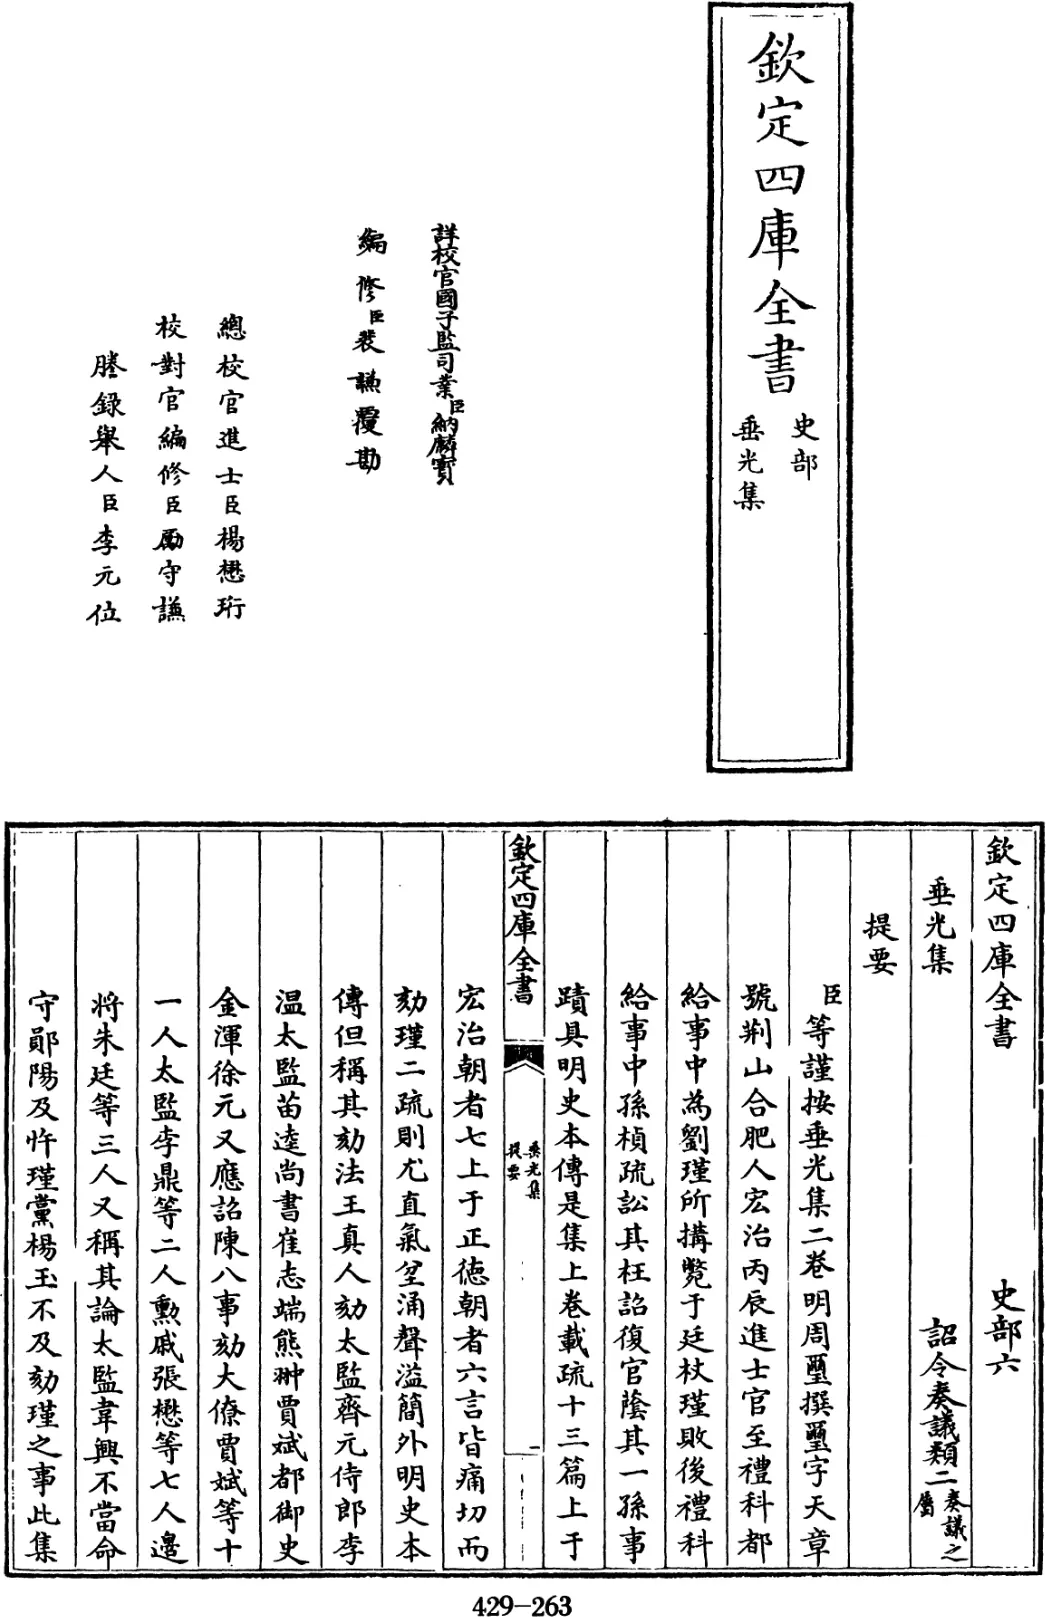 欽定四庫全書
史部
垂光集
詳校官國子監司業臣納麟寶
編修臣裴謙覆勘
總校官進士臣楊懋珩
校對官編修臣勵守謙
謄錄舉人臣李元位
欽定四庫全書 史部六
垂光集 詔令奏議類二奏議之屬
提要
臣等謹按垂光集二卷明周璽撰璽字天章
號荆山合肥人宏治丙辰進士官至禮科都
給事中為劉瑾所搆斃于廷杖瑾敗後禮科
給事中孫禎疏訟其枉詔復官蔭其一孫事
蹟具明史本傳是集上卷載疏十三篇上于
欽定四庫全書
垂光集
提要
一
宏治朝者七上于正德朝者六言皆痛切而
劾瑾二疏則尤直氣坌涌聲溢簡外明史本
傳但稱其劾法王真人劾太監齊元侍郎李
温太監苗逵尚書崔志端熊翀賈斌都御史
金渾徐元又應詔陳八事劾大僚賈斌等十
一人太監李鼎等二人勲戚張懋等七人邊
將朱廷等三人又稱其論太監韋興不當命
守鄖陽及忤瑾黨楊玉不及劾瑾之事此集
429-263